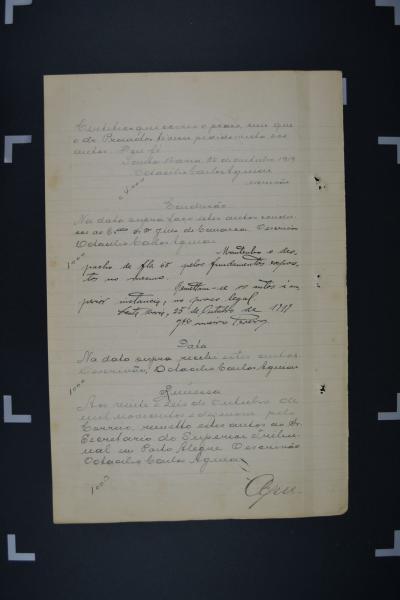 Certifico que correu o prazo, sem que
o dr. Promotor désse providencia aos
autos. Dou fé.
Santa Maria, 25 de outubro 1919
Octacilio Carlos Aguiar
escrivão
4000
Conclusão
Na data supra faço estes autos conclu
sos ao dr. Juiz de Comarca. O escrivão
Octacilio Carlos Aguiar
1000
Mantenho o des-
pacho de fls 65 pelos fundamentos expos-
tos no mesmo.
Remettam-se os autos á su
perior instancia, no prazo legal
Santa Maria, 25 de Outubro de 1919
Data
Na data supra recebi estes autos.
O escrivão, Octacilio Carlos Aguiar
1000
Remessa
Aos vinte e seis de Outubro de
mil novecentos e desenove, pelo
Correio, remetto estes autos ao Sr.
Secretario do Superior Tribu
nal em Porto Alegre. O escrivão
Octacilio Carlos Aguiar
1000